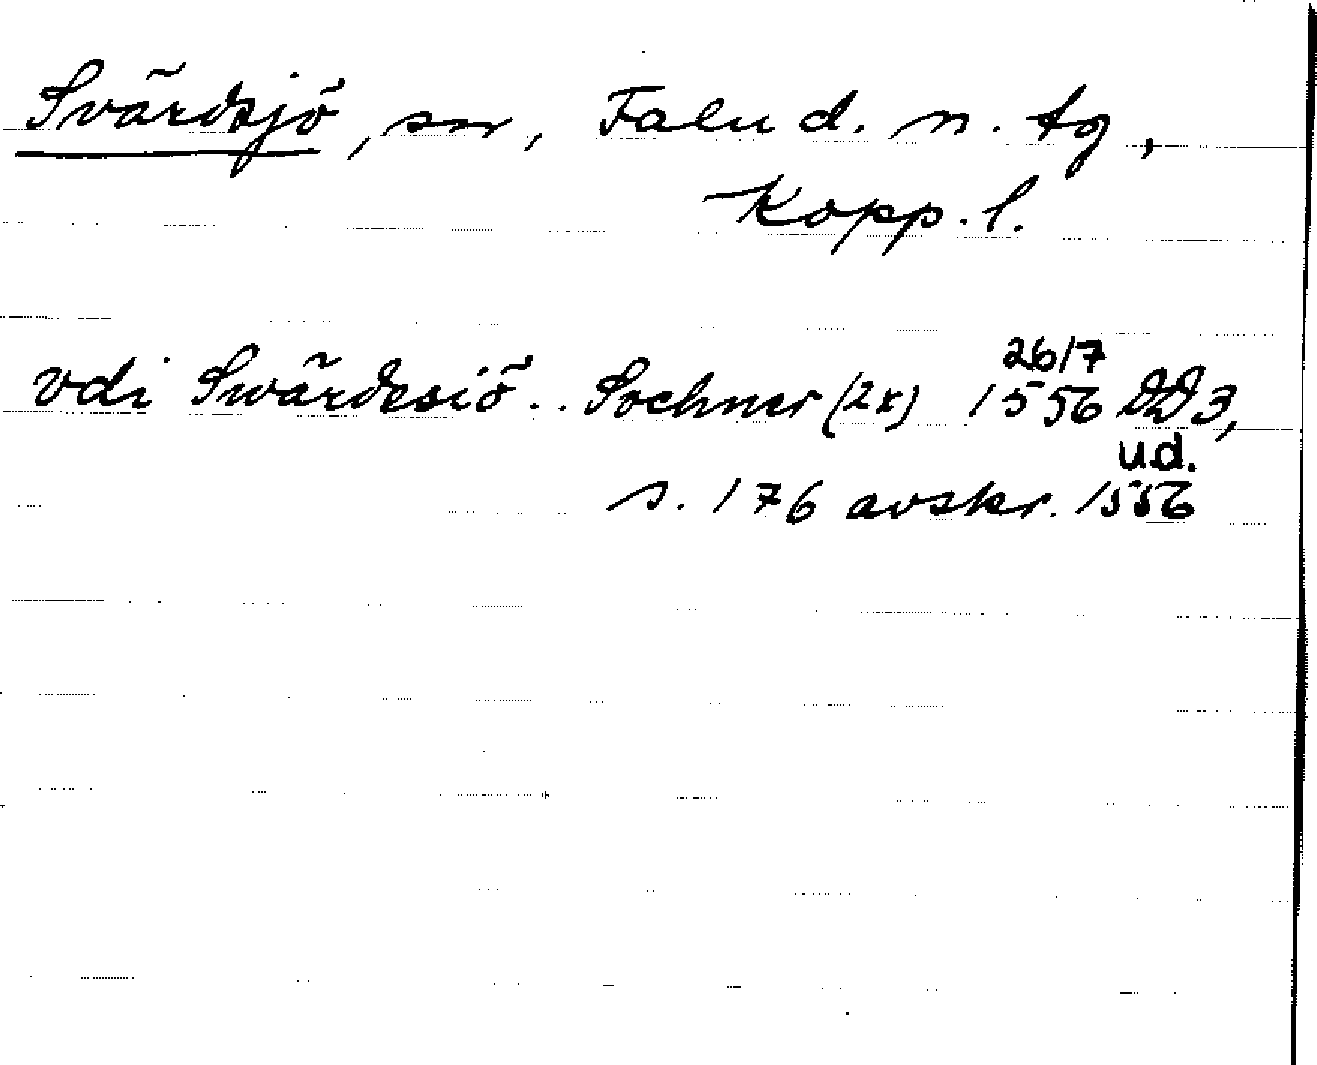 Svärdsjö, sn, Falu d. n. tg,
Kopp. l.
vdi Swärdesiö .. Sochner (2x) 26/7 1556 DD 3,
u.d.
s. 176 avskr. 1556